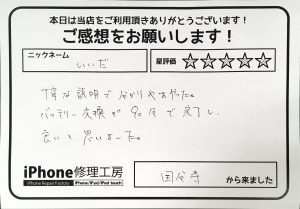 本日は当店をご利用頂きありがとうございます！
ご感想をお願いします！
ニックネーム
いいだ
星評価 ☆☆☆☆☆
丁寧な説明で分かりやすかった。
バッテリー交換が90分で完了し、
良いと思いました。
iPhone修理工房
iPhone Repair Factory
iPhone/iPad/iPod touch
国分寺 から来ました